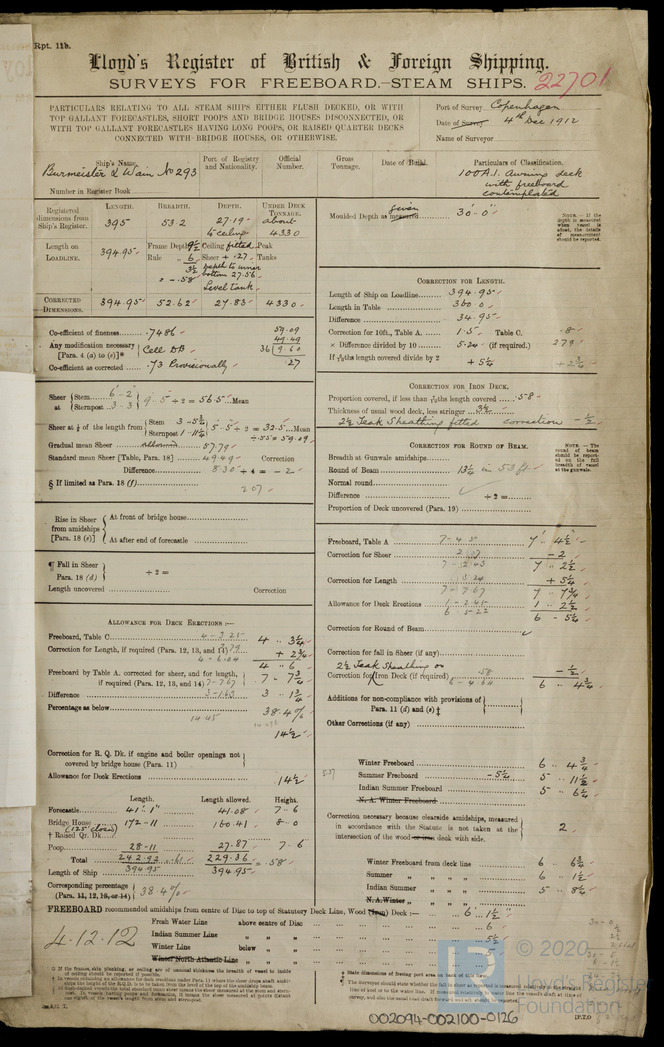 Rpt. 11b.
Lloyd's Register of British & Foreign Shipping.
SURVEYS FOR FREEBOARD.—STEAM SHIPS. 22701
PARTICULARS RELATING TO ALL STEAM SHIPS EITHER FLUSH DECKED, OR WITH
TOP GALLANT FORECASTLES, SHORT POOPS AND BRIDGE HOUSES DISCONNECTED, OR
WITH TOP GALLANT FORECASTLES HAVING LONG POOPS, OR RAISED QUARTER DECKS
CONNECTED WITH BRIDGE HOUSES, OR OTHERWISE.
Port of Survey Copenhagen
Date of Survey 4th Dec 1912
Name of Surveyor
Ship's Name. Port of Registry and Nationality. Official Number. Gross Tonnage. Date of Build. Particulars of Classification.
Burmeister & Wain No 293
100 A.1. Awning deck
with freeboard
contemplated
Number in Register Book
LENGTH. BREADTH. DEPTH. UNDER DECK TONNAGE.
Registered dimensions from Ship's Register. 395 53.2 27.19 to ceiling about 4330
Length on LOADLINE. 394.95 Frame Depth 9½ Ceiling fitted Peak Tanks
Rule 6 Sheer + .27
3½ depth to inner
.58 bottom 27.56
Level tank
CORRECTED DIMENSIONS. 394.95 52.62 27.83 4330
Moulded Depth as measured given 30'-0"
NOTE.—If the depth is measured when vessel is afloat, the details of measurement should be reported.
Co-efficient of fineness .7486
Any modification necessary [Para. 4 (a) to (e)]* Cell DB
Co-efficient as corrected .73 Provisionally
59.09
49.49
36 | 9.60
.27
CORRECTION FOR LENGTH.
Length of Ship on Loadline 394.95
Length in Table 360.0
Difference 34.95
Correction for 10ft., Table A. 1.5 Table C. .8
× Difference divided by 10 5.24 (if required.) 2.79
If 6/10ths length covered divide by 2 + 5¼ + 2¾
Sheer at Stem 6-2 Sternpost 3-3 9-5 ÷ 2 = 56.5 Mean
Sheer at ⅛ of the length from Stem 3-5¾ Sternpost 1-11¼ 5-5 ÷ 2 = 32.5 Mean
÷ .55 = 59.09
Gradual mean Sheer 57.79
Standard mean Sheer [Table, Para. 18] 49.49 Correction
Difference 8.30 ÷ 4 = - 2
§ If limited as Para. 18 (f)
2.07
CORRECTION FOR IRON DECK.
Proportion covered, if less than 7/10ths length covered .58
Thickness of usual wood deck, less stringer 3½
2½ Teak Sheathing fitted correction - ½
CORRECTION FOR ROUND OF BEAM.
Breadth at Gunwale amidships
Round of Beam 13¼ in 53 ft
Normal round
Difference ÷ 2 =
Proportion of Deck uncovered (Para. 19)
NOTE.—The round of beam should be reported on the full breadth of vessel at the gunwale.
Rise in Sheer from amidships [Para. 18 (e)]
At front of bridge house
At after end of forecastle
¶ Fall in Sheer Para. 18 (d) ÷ 2 =
Length uncovered Correction
Freeboard, Table A 7-4.5 7 . 4½
Correction for Sheer 2.07 - 2
7-2.43 7 . 2½
Correction for Length 5.24 + 5¼
7-7.67 7 . 7¾
Allowance for Deck Erections 1-2.45 1 . 2½
6-5.22 6 . 5¼
Correction for Round of Beam
Correction for fall in Sheer (if any)
2½ Teak Sheathing on
Correction for Iron Deck (if required) .58 - ½
6-4.64 6 . 4¾
Additions for non-compliance with provisions of Para. 11 (d) and (e) ‡
Other Corrections (if any)
ALLOWANCE FOR DECK ERECTIONS :—
Freeboard, Table C 4-3.25 4 . 3¼
Correction for Length, if required (Para. 12, 13, and 14) 2.79 + 2¾
4-6.04 4 . 6
Freeboard by Table A. corrected for sheer, and for length, if required (Para. 12, 13, and 14) 7-7.67 7 . 7¾
Difference 3-1.63 3 . 1¾
Percentage as below 38.4%
14.45
14½
Correction for R. Q. Dk. if engine and boiler openings not covered by bridge house (Para. 11)
Allowance for Deck Erections 14½
Length. Length allowed. Height.
Forecastle 41'.1" 41.08 7-6
Bridge House (125 closed) 172-11 160.41 8-0
† Raised Qr. Dk.
Poop 28-11 27.87 7-6
Total 242.92 = .61 229.36 = .58
Length of Ship 394.95 394.95
Corresponding percentage (Para. 11, 12, 13, or 14) 38.4%
Winter Freeboard 6 . 4¾
Summer Freeboard - 5¼ 5 . 11½
Indian Summer Freeboard 5 . 6¼
N. A. Winter Freeboard
Correction necessary because clearside amidships, measured in accordance with the Statute is not taken at the intersection of the wood or iron deck with side. 2
Winter Freeboard from deck line 6 . 6¾
Summer " " " 6 . 1½
Indian Summer " " " 5 . 8¼
N. A. Winter " " "
FREEBOARD recommended amidships from centre of Disc to top of Statutory Deck Line, Wood (Iron) Deck :— 6 . 1½
Fresh Water Line above centre of Disc 6
Indian Summer Line " " 5¼
Winter Line below " 5¼
Winter North Atlantic Line " "
4.12.12
© 2020
Lloyd's Register
Foundation
[P.T.O
002094-002100-0126